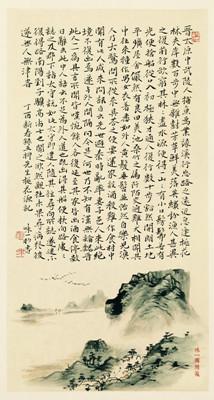 晉太原中武陵人捕魚為業緣溪行忘路之遠近忽逢桃花
林夾岸數百步中無雜樹芳草鮮美落英繽紛漁人甚異
之復前行欲窮其林林盡水源便得一山山有小口髣髴若有
光便捨船從口入初極狹纔通人復行數十步豁然開朗土地
平曠屋舍儼然有良田美池桑竹之屬阡陌交通雞犬相聞其
中往來種作男女衣著悉如外人黃髮垂髫並怡然自樂見漁
人乃大驚問所從來具答之便要還家設酒殺雞作食村中
聞有此人咸來問訊自云先世避秦時亂率妻子邑人來此絕
境不復出焉遂與外人間隔問今是何世乃不知有漢無論魏晉
此人一一為具言所聞皆嘆惋餘人各復延至其家皆出酒食停數
日辭去此中人語云不足為外人道也既出得其船便扶向路處處
誌之及郡下詣太守說如此太守即遣人隨其往尋向所誌遂迷不
復得路南陽劉子驥高尚士也聞之欣然親往未果尋病終後
遂無人問津者
丁酉新春錄 先生桃花源記